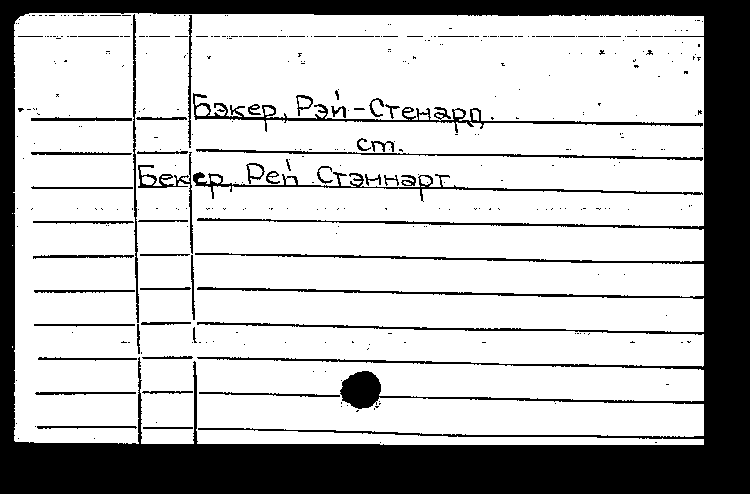 Бэкер, Рэй-Стенард.
ст.
Бекер, Рей Стэннарт.